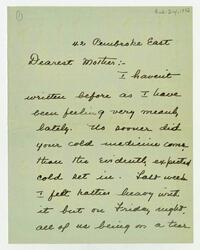 ①
42 Pembroke East
Dearest Mother:-
I haven't
written before as I have
been feeling very meanly
lately. No sooner did
your cold medicine come
than the evidently expected
cold set in. Last week
I felt rather heavy with
it but on Friday night
all of us being on a tear